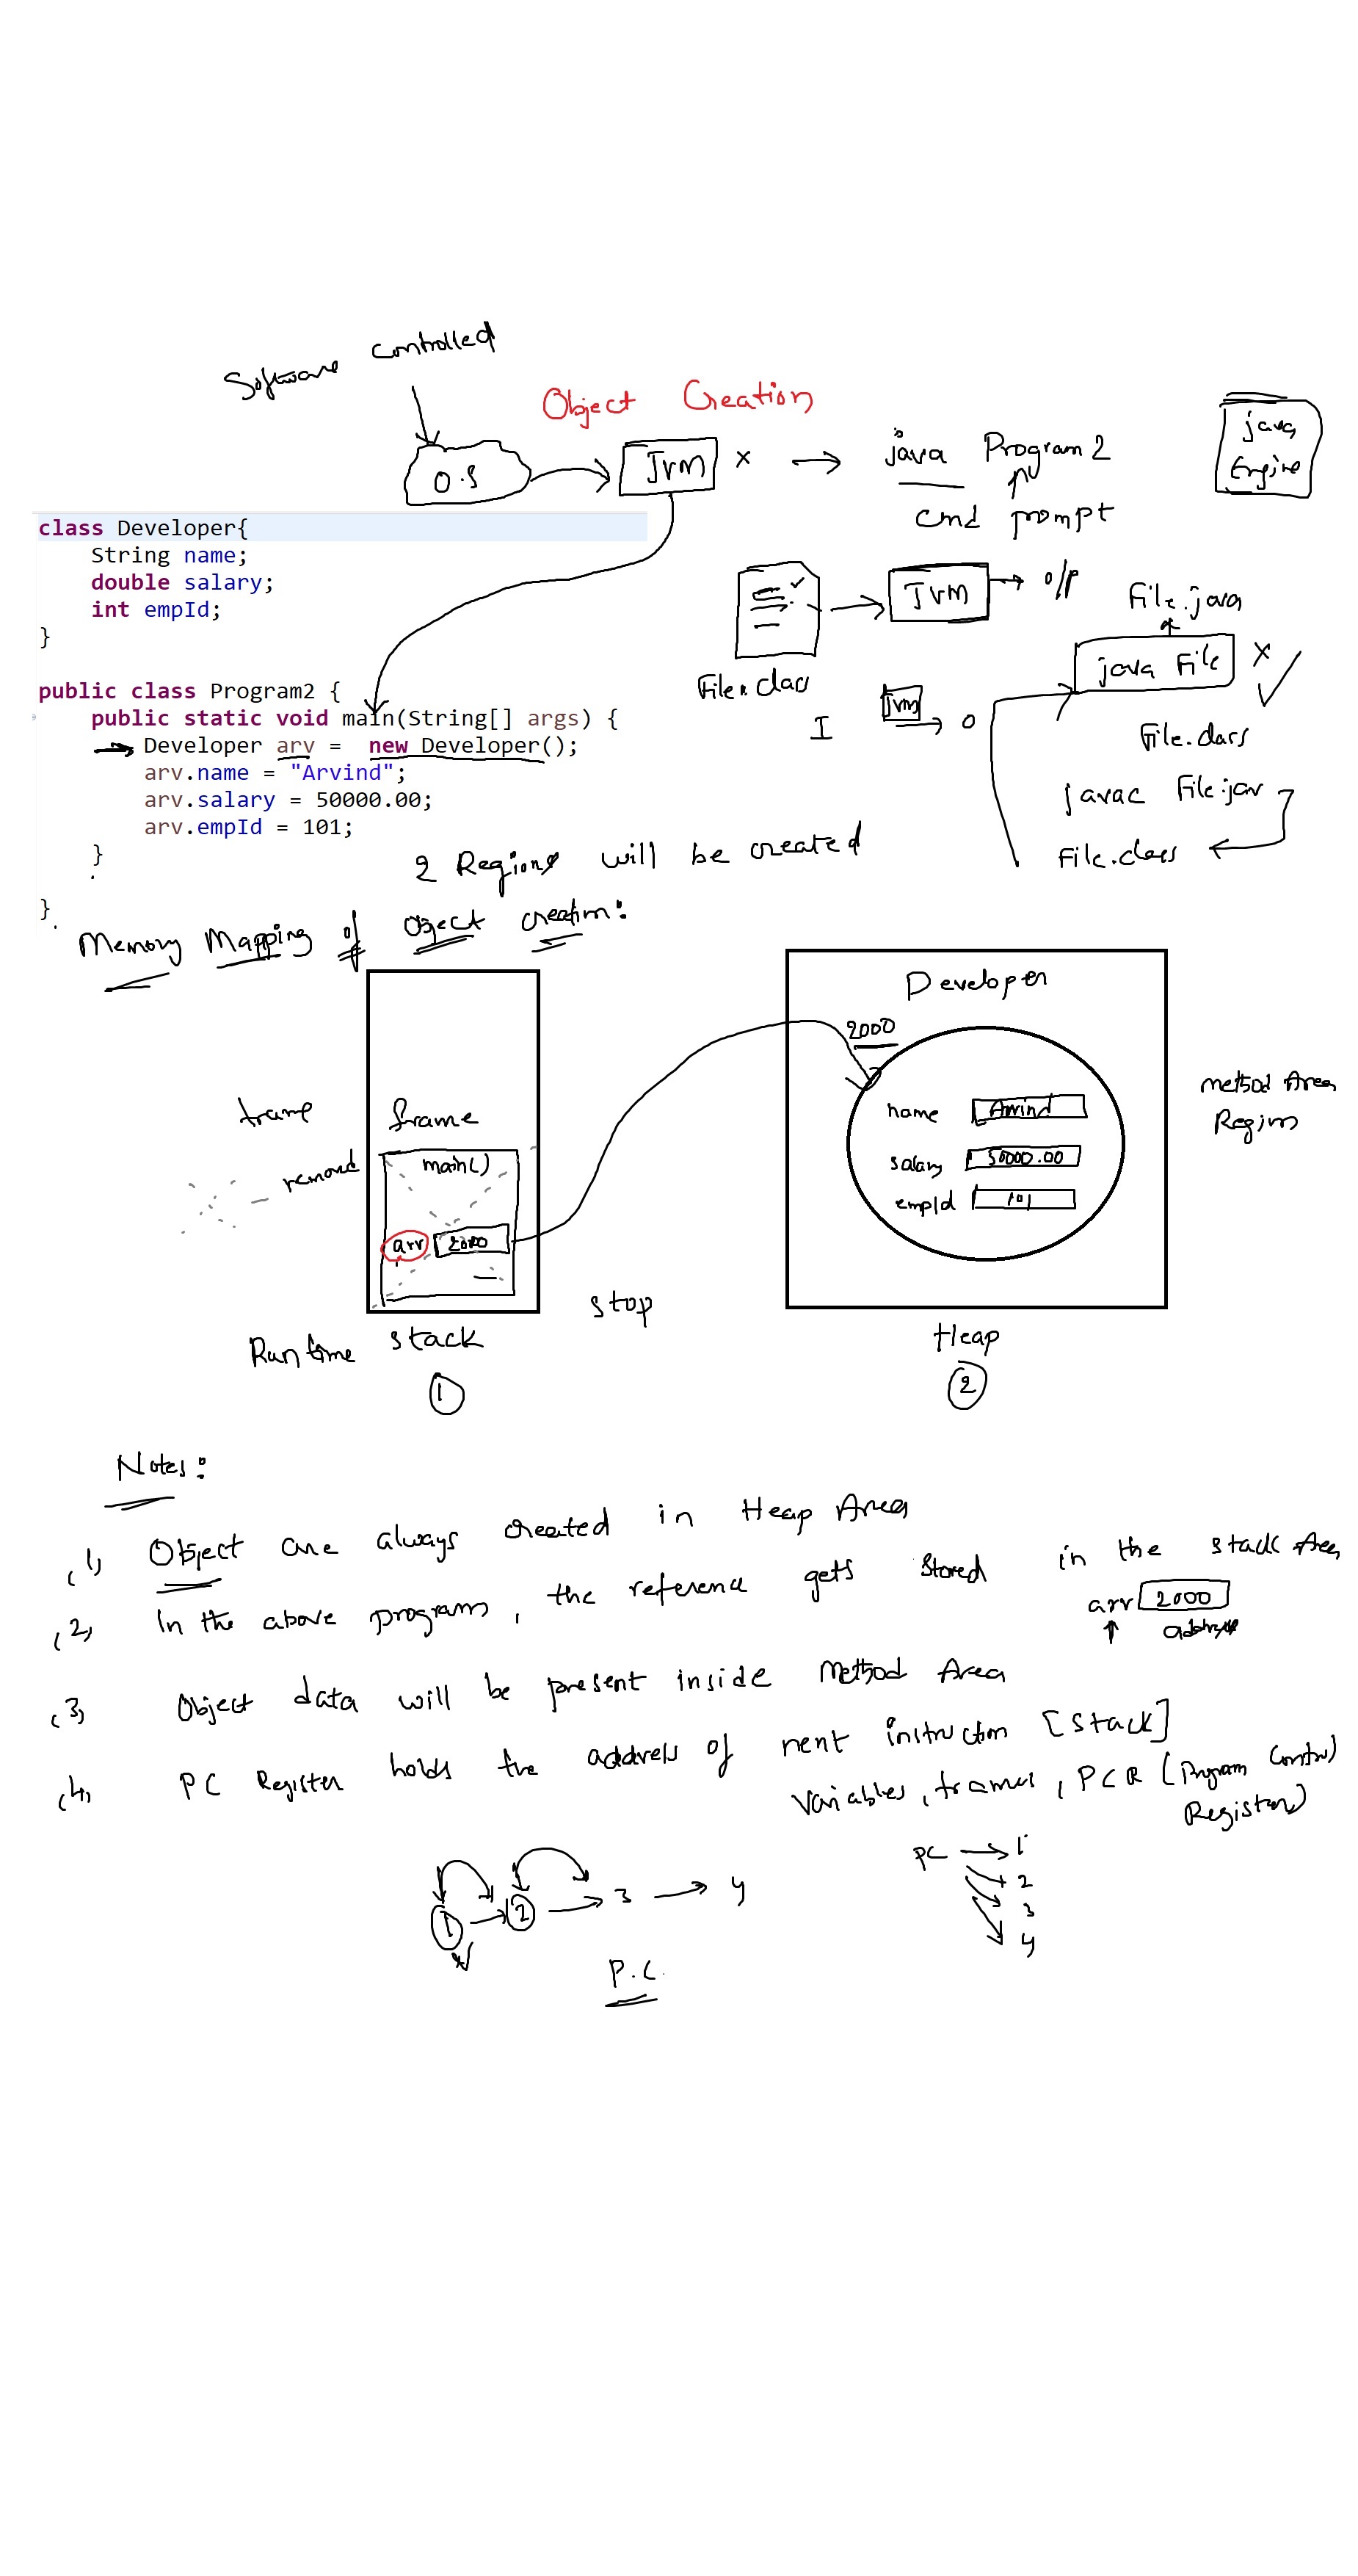 Software controlled
Object Creation
O.S
Jvm x → java Program 2
cmd prompt
java
Engine
class Developer{
String name;
double salary;
int empId;
}
public class Program2 {
public static void main(String[] args) {
Developer arv = new Developer();
arv.name = "Arvind";
arv.salary = 50000.00;
arv.empId = 101;
}
}
Jvm → o/p
File.java
java File x ✓
I Jvm → o
File.class
javac File.jav
File.class
2 Regions will be created
Memory Mapping of Object creation:
Developer
2000
name Arvind
salary 50000.00
empId 101
Method Area
Region
frame
frame
removd
main()
arv 2000
stop
Runtime stack
1
Heap
2
Notes:
(1) Object are always created in Heap Area
(2) In the above program, the reference gets stored in the stack Area
arv 2000
(3) Object data will be present inside Method Area
(4) PC Register holds the address of next instruction [stack]
Variables, frames, PCR (Program Control
Register)
1 → 2 → 3 → 4
PC → 1
2
3
4
P.C.